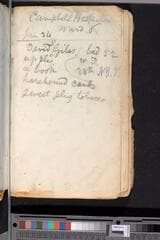 Campbell Hospital
Ward 6
Jan 24
David Giles bed 52
apples W. 6
a book 28th N.J. V
horehound candy
sweet plug tobacco